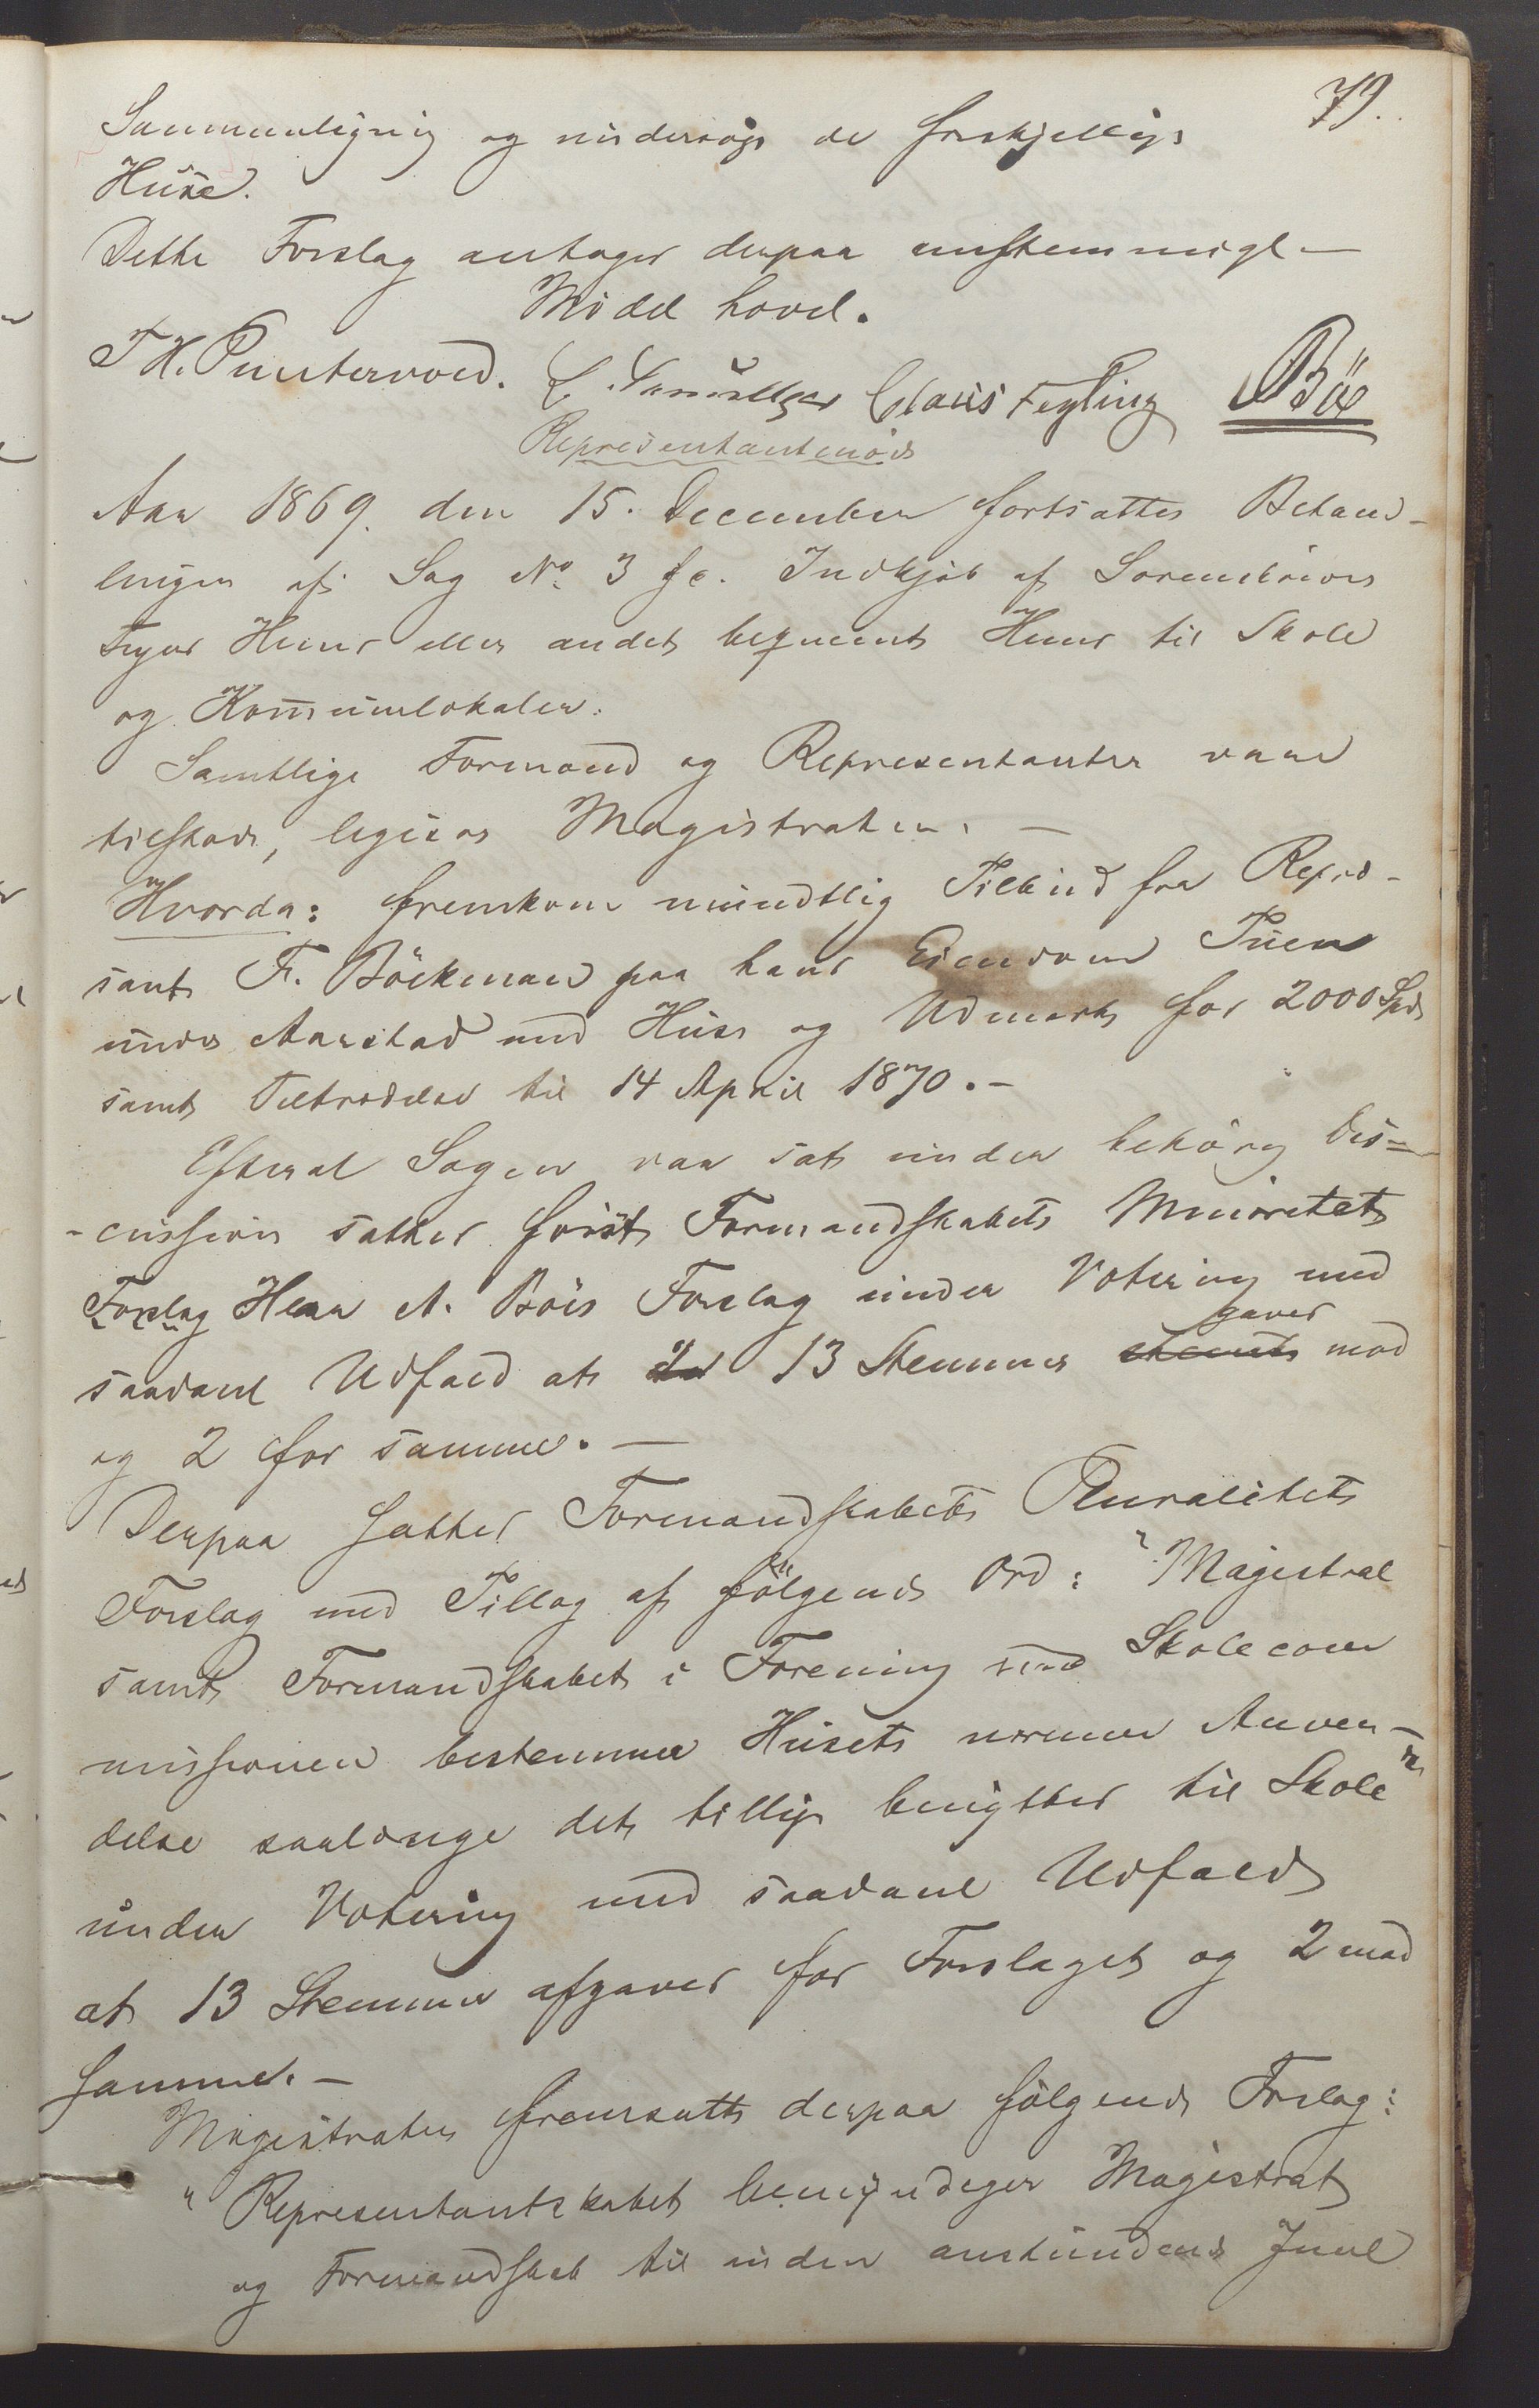 79.
Sammenligning og undersøge de forskjellige
Huse.
Dette Forslag antoges derpaa enstemmigt. –
Mödet hævet.
T H. Puntervold. Claus Feyling Böe
Representantmöde
Aar 1869. den 15. December fortsattes Behand-
lingen af Sag No. 3 Indkjöb af Sorenskriver
Feyers Huus eller andet beqvemt Huus til Skole
og Kommunelokaler.
Samtlige Formænd og Representanter vare
tilstede, ligesaa Magistraten. –
Hvorda: fremkom mundtlig Tilbud fra Repræ-
sant F. Böckman paa hans Eiendom Tuen
under Aarstad med Huse og Udmark for 2000 Spd
samt Tiltrædelse til 14 April 1870. –
Efterat Sagen var sat under behörig Dis-
-cussion sattes först Formandskabets Minoritets
Forslag Herr A. Böes Forslag under Votering med
saadant Udfald at 13 Stemmer gaves mod
og 2 for samme. –
Derpaa sattes Formandskabets Pluralitets
Forslag med Tillæg af fölgende Ord: "Magistrat
samt Formandskabet i Forening med Skolecom
missionen bestemmer Husets nærmere Anven-
delse saalænge det tillige benyttes til Skole"
under Votering med saadant Udfald
at 13 Stemmer afgaves for Forslaget og 2 mod
samme. –
Magistraten fremsatte derpaa fölgende Forslag:
"Representantskabet bemyndiger Magistrat
og Formandskab til inden anstundende Juul